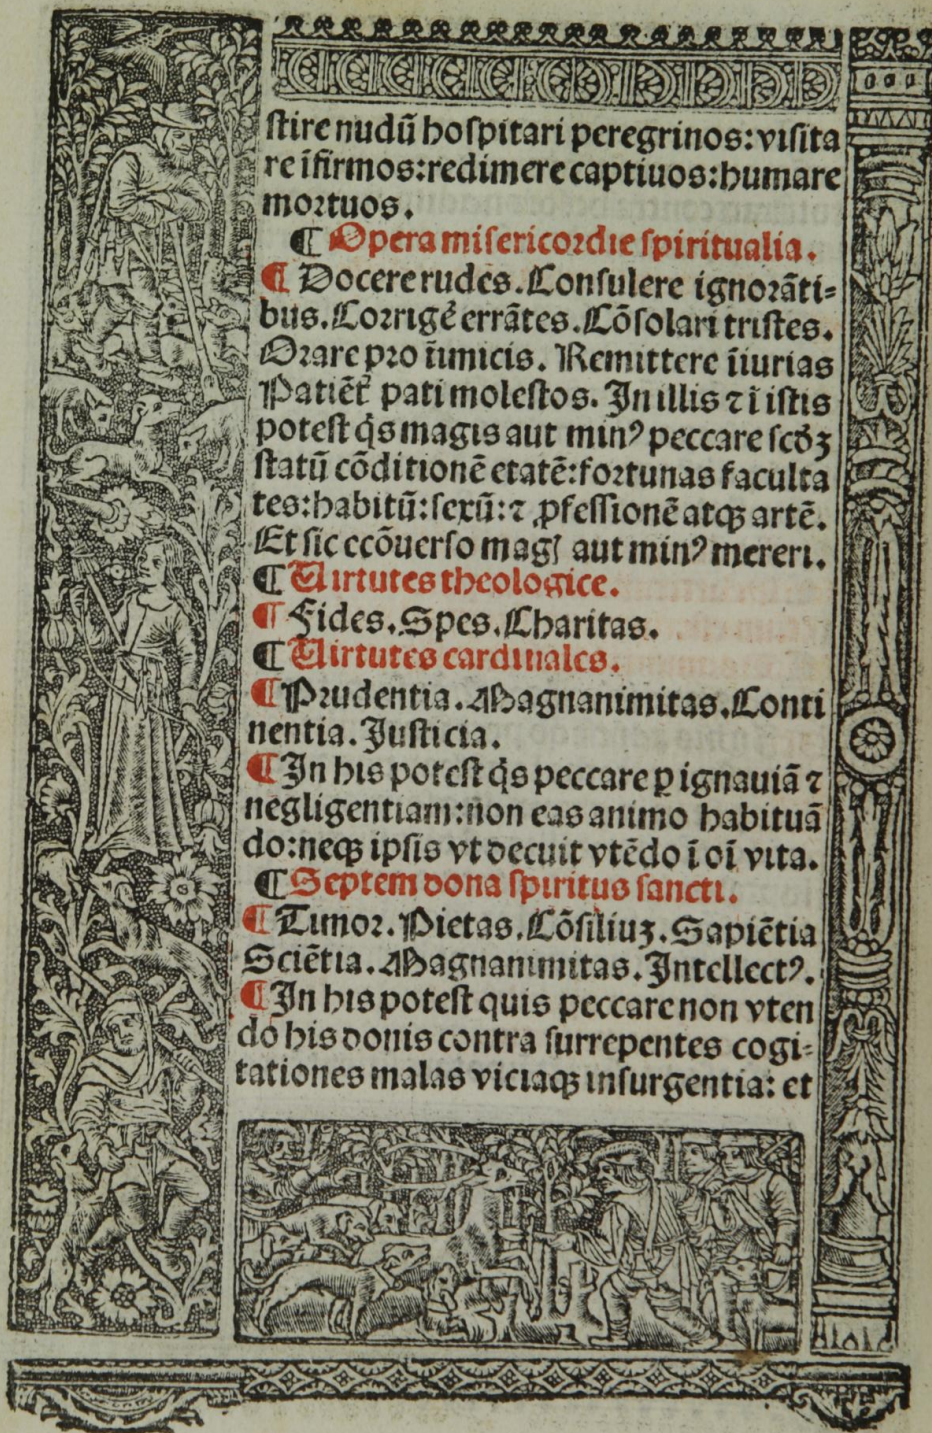 ſtire nudū hoſpitari peregrinos: viſita
re īfirmos: redimere captiuos: humare
moꝛtuos.
¶ Opera miſericoꝛdie ſpiritualia.
¶ Docere rudes. Conſulere ignoꝛāti⸗
bus. Coꝛrigé errātes. Cōſolari triſtes.
Oꝛare pꝛo inimicis. Remittere iiurias
pati moleſtos. In illis ⁊ ī iſtis
poteſt q̇s magis aut minꝰ peccare ſcꝺꝫ
ſtatū cōditionē etatē: foꝛtunas faculta
tes: habitū: ſexū: ⁊ ꝓfeſſionē atqꝫ artē.
Et ſic ecōuerſo magꝭ aut minꝰ mereri.
¶ Uirtutes theologice.
¶ Fides. Spes. Charitas.
¶ Uirtutes cardinales.
¶ Pꝛudentia. Magnanimitas. Conti
nentia. Juſticia.
¶ In his poteſt q̇s peccare ꝑ ignauiā ⁊
negligentiam: non eas animo habituā
do: neqꝫ ipſis vt decuit vtēdo ī oī vita.
¶ Septem dona ſpiritus ſancti.
¶ Timoꝛ. Pietas. Cōſiliuꝫ. Sapiētia
Sciētia. Magnanimitas. Intellectꝰ.
¶ In his poteſt quis peccare non vten
do his donis contra ſurrepentes cogi⸗
tationes malas viciaqꝫ inſurgentia: et